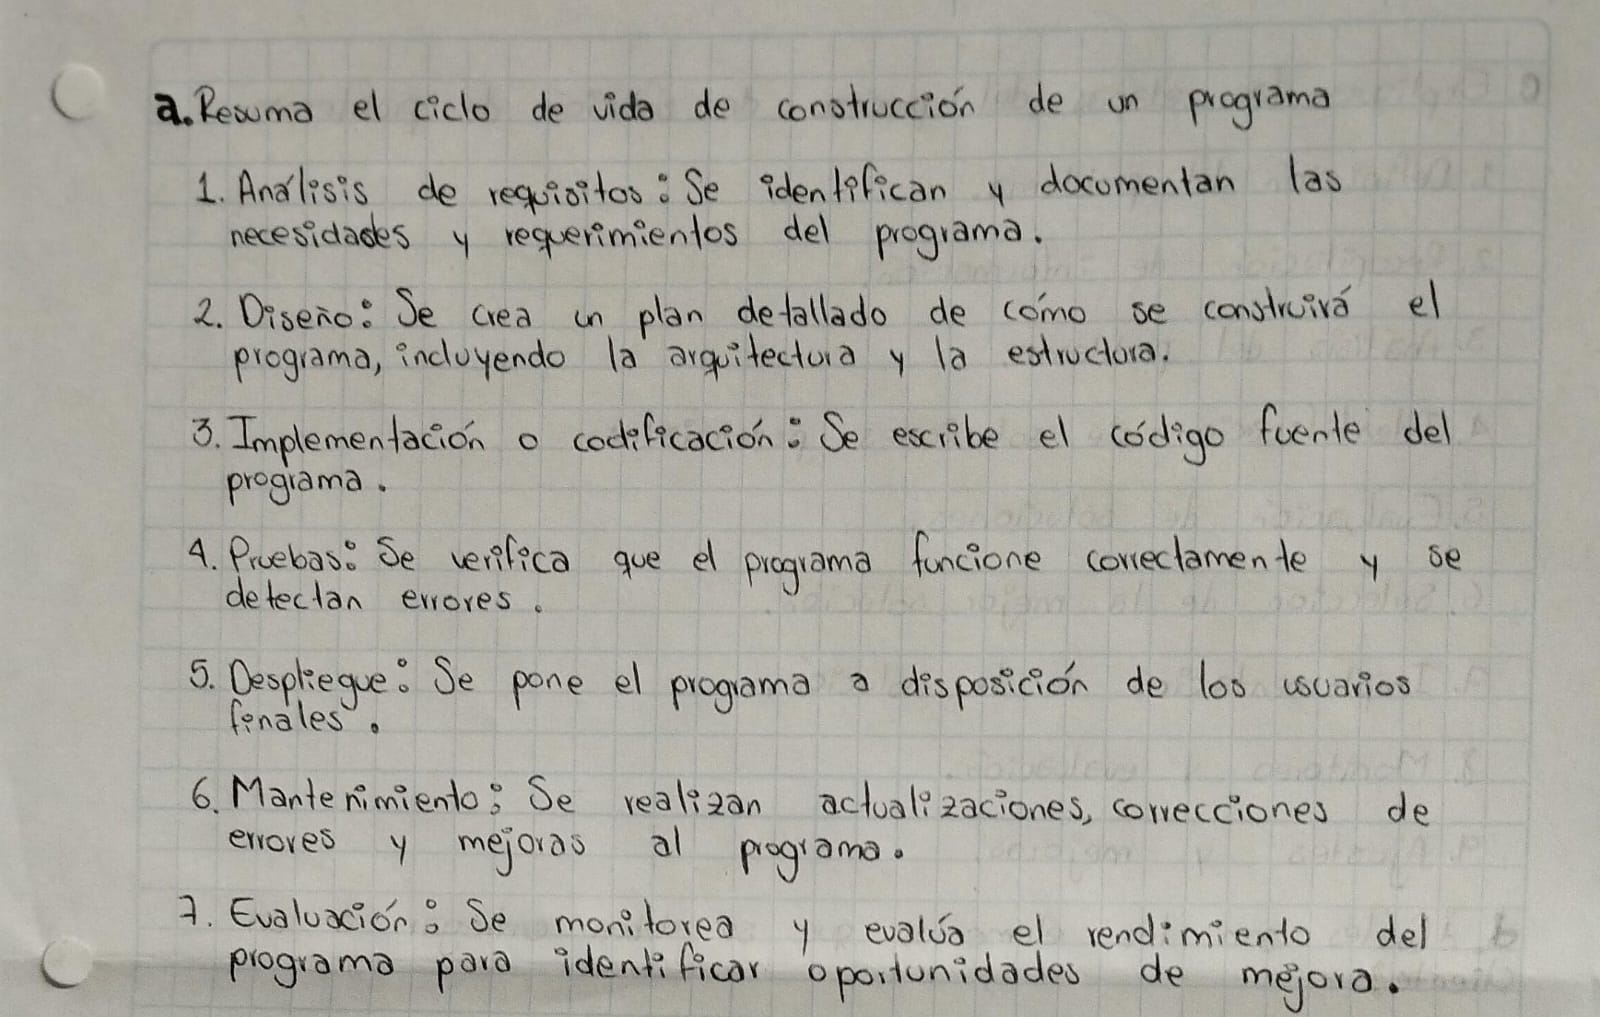 a. Resuma el ciclo de vida de construcción de un programa
1. Análisis de requisitos: Se identifican y documentan las
necesidades y requerimientos del programa.
2. Diseño: Se crea un plan detallado de cómo se construirá el
programa, incluyendo la arquitectura y la estructura.
3. Implementación o codificación: Se escribe el código fuente del
programa.
4. Pruebas: Se verifica que el programa funcione correctamente y se
detectan errores.
5. Despliegue: Se pone el programa a disposición de los usuarios
finales.
6. Mantenimiento: Se realizan actualizaciones, correcciones de
errores y mejoras al programa.
7. Evaluación: Se monitorea y evalúa el rendimiento del
programa para identificar oportunidades de mejora.